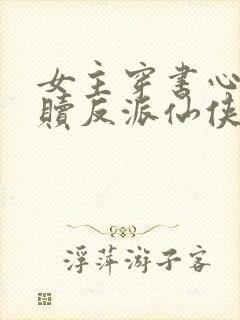 女主穿书心
赎反派仙侠
浮萍游子客